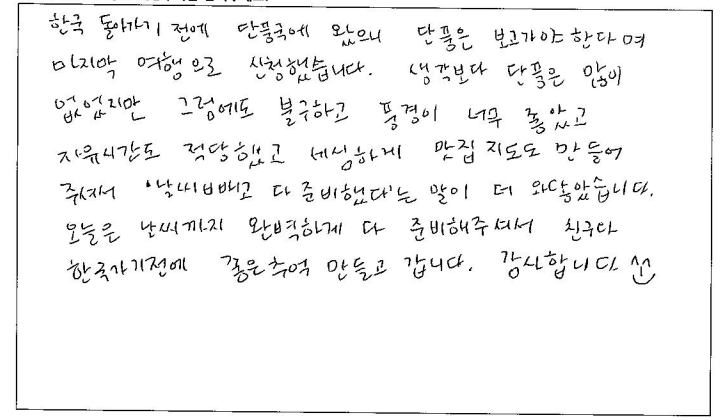 한국 돌아가기 전에 단풍국에 왔으니 단풍은 보고가야한다며
마지막 여행으로 신청했습니다. 생각보다 단풍은 많이
없었지만 그럼에도 불구하고 풍경이 너무 좋았고
자유시간도 적당했고 세심하게 맛집지도도 만들어
주셔서 '날씨빼고 다 준비했다'는 말이 더 와닿았습니다.
오늘은 날씨까지 완벽하게 다 준비해주셔서 친구다
한국가기전에 좋은추억 만들고 갑니다. 감사합니다